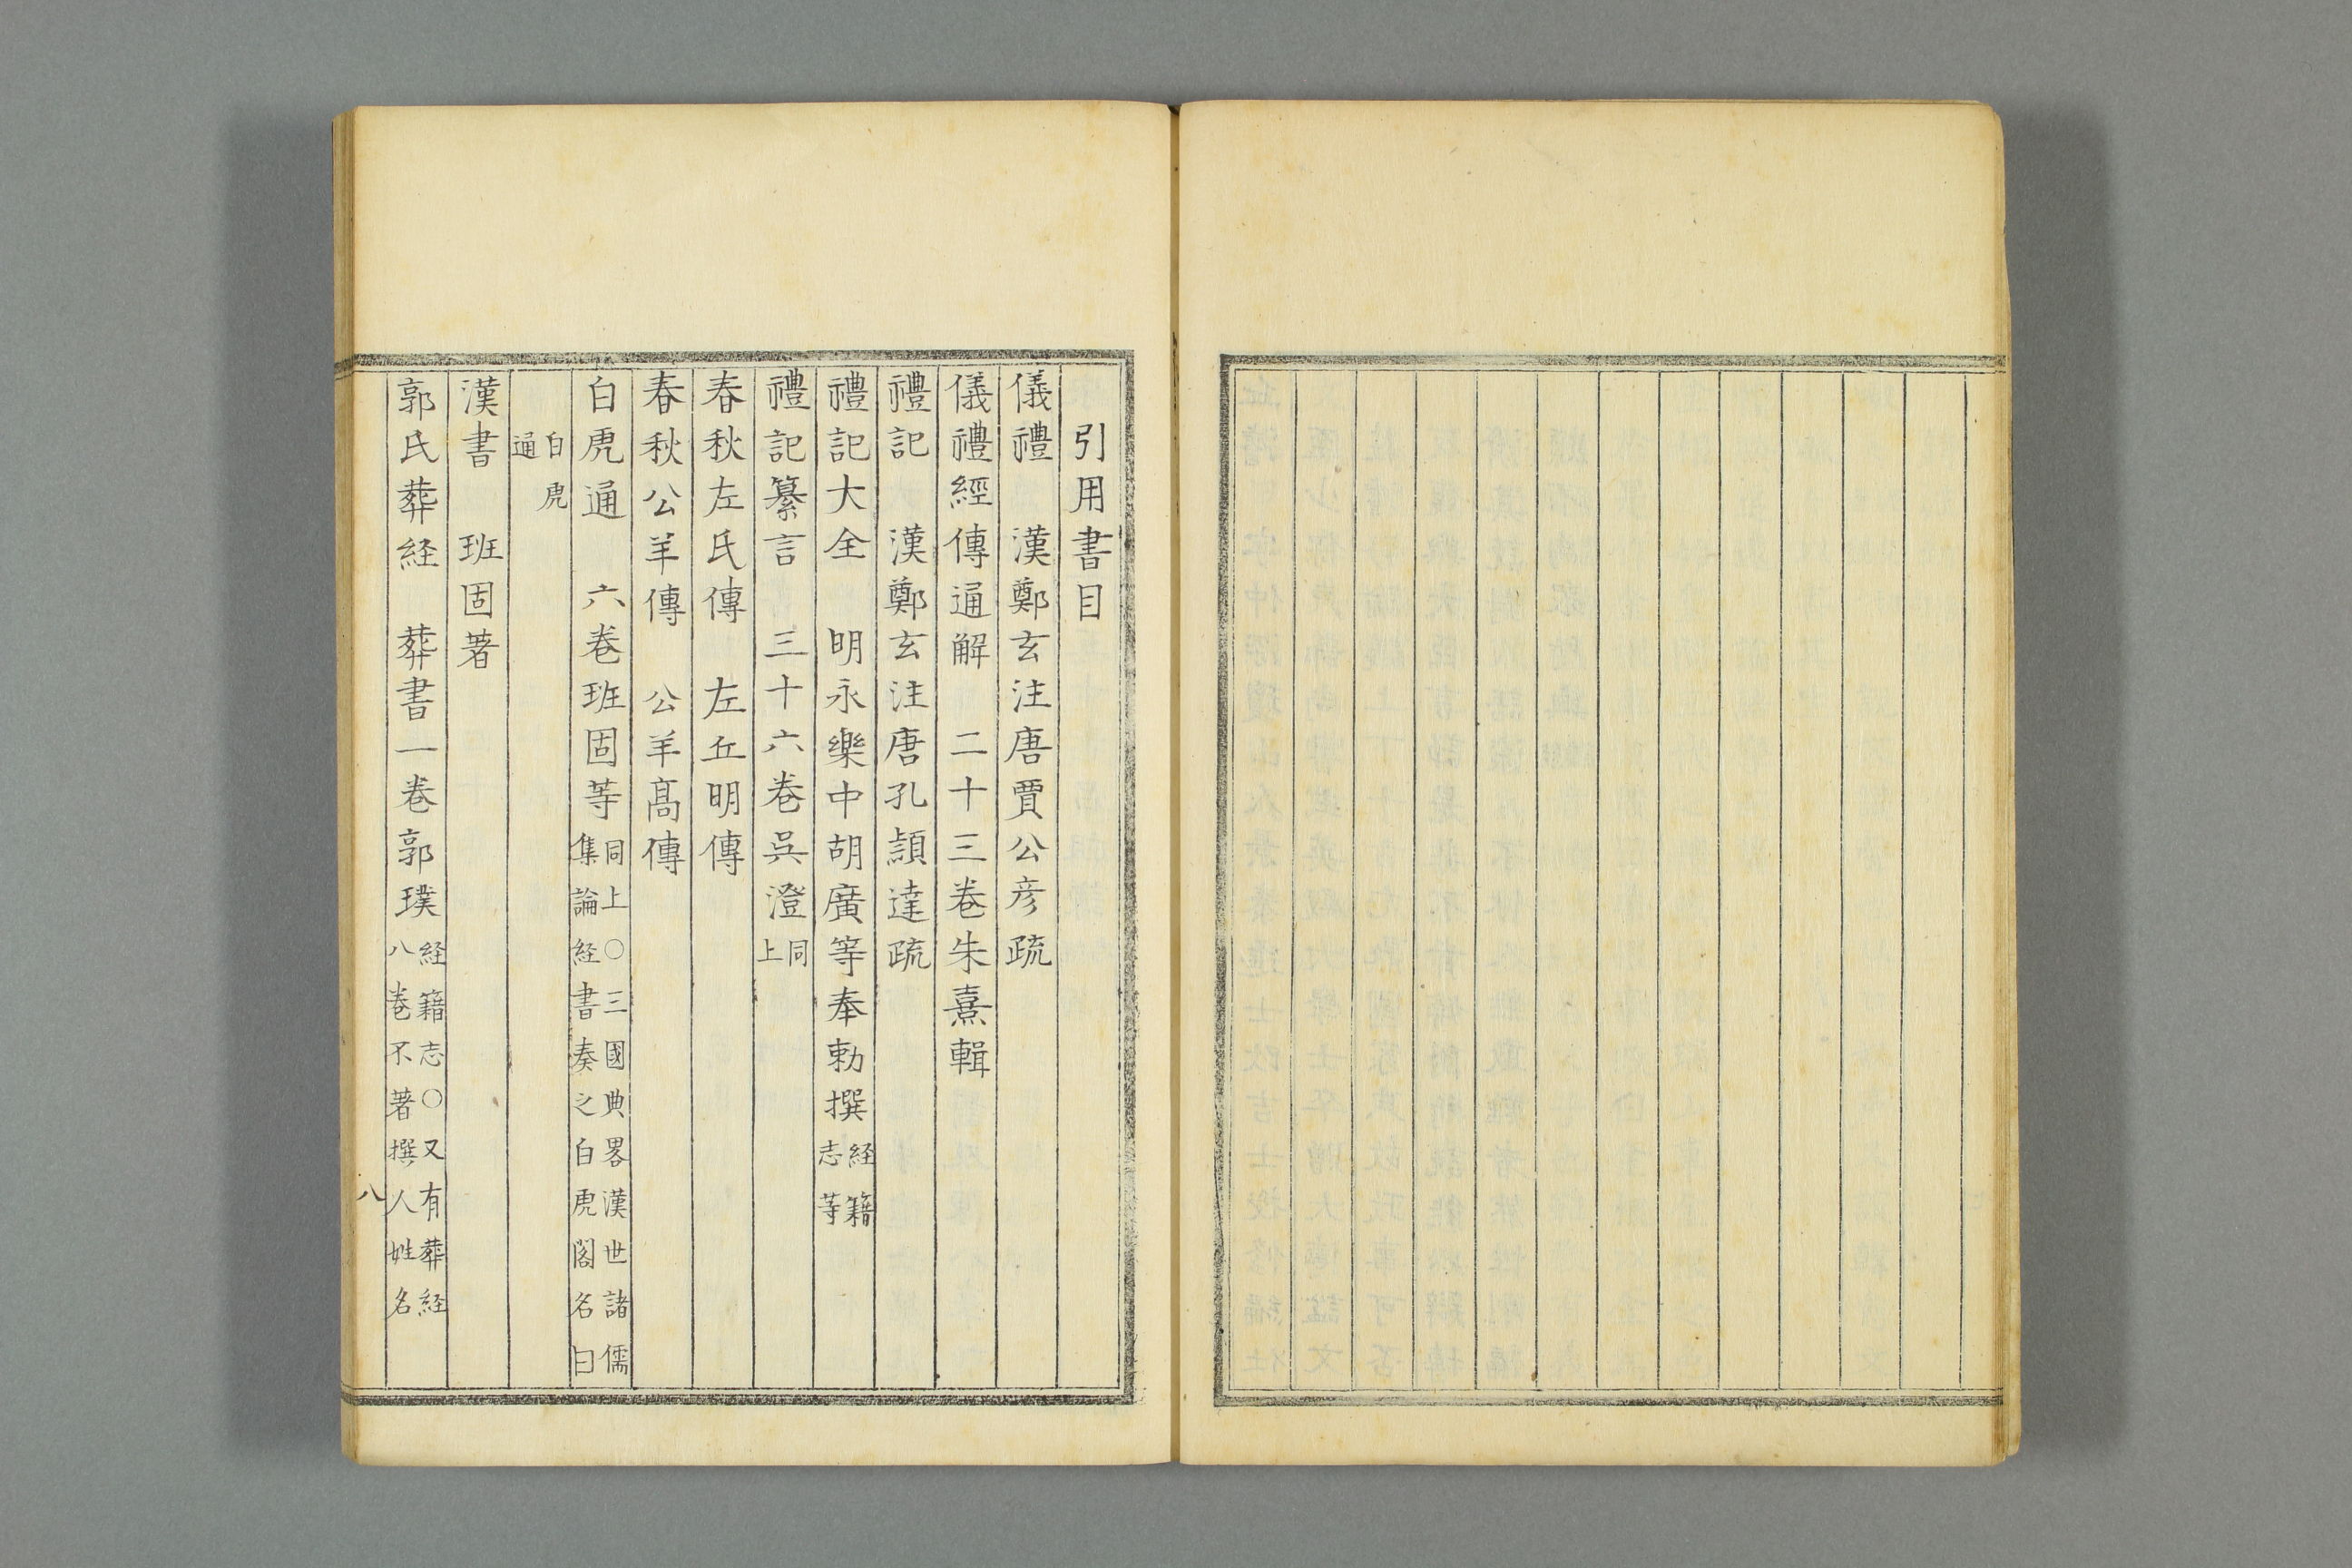 引用書目
儀禮　漢鄭玄注唐賈公彦疏
儀禮經傳通解　二十三卷朱熹輯
禮記　漢鄭玄注唐孔頴達疏
禮記大全　明永樂中胡廣等奉勅撰経籍志等
禮記纂言　三十六卷吳澄同上
春秋左氏傳　左丘明傳
春秋公羊傳　公羊髙傳
白虎通　六卷班固等同上〇三國典畧漢世諸儒集論経書奏之白虎閣名曰
白虎通
漢書　班固著
郭氏葬経　葬書一卷郭璞経籍志〇又有葬経八卷不著撰人姓名
八